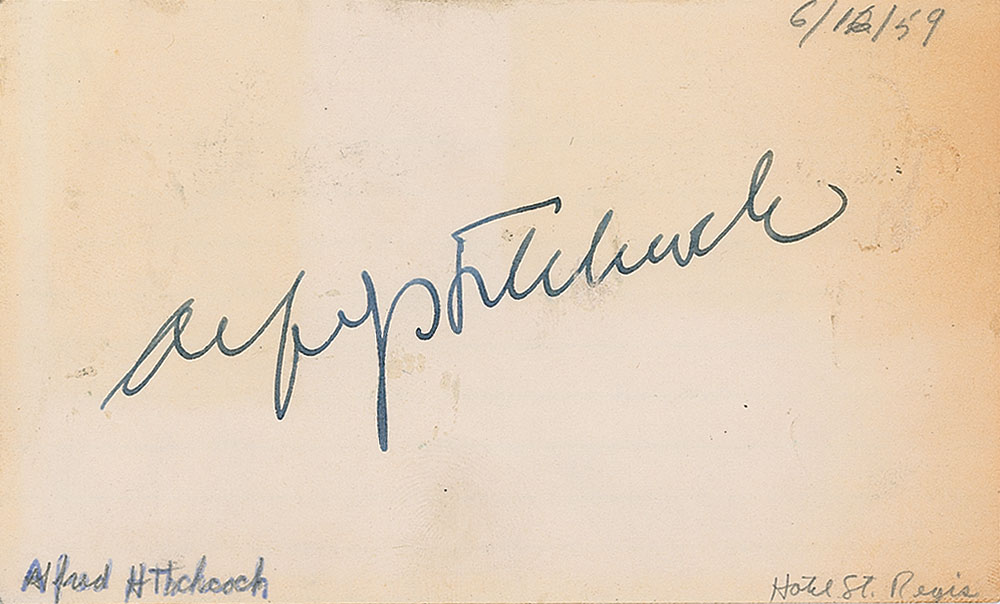 6/12/59
Alfred Hitchcock
Alfred Hitchcock
Hotel St. Regis